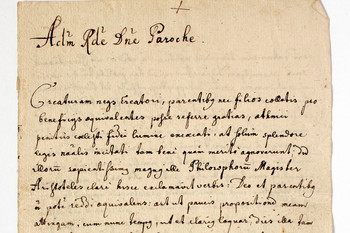 Adm Rde Dne Paroche.
Creaturam neqs Creatori, parentibus nec filios collatis pro
beneficijs aequivalentes posse referre gratias, athnici
penitus caelesti fidei lumine orbati: at solum splendore
legis naalis incitati tam beati quam meriti agnoverunt.
illorum sapientissimq magnq ille Philosophorum Magister
Aristoteles clari hisce exclamavit verbis: Deo et parentibq
n̄ potest reddi aequivalens: ast ut paucis propositionē meam
attingam, cum nunc tempq, ut et clariq loquar Dies illa tam